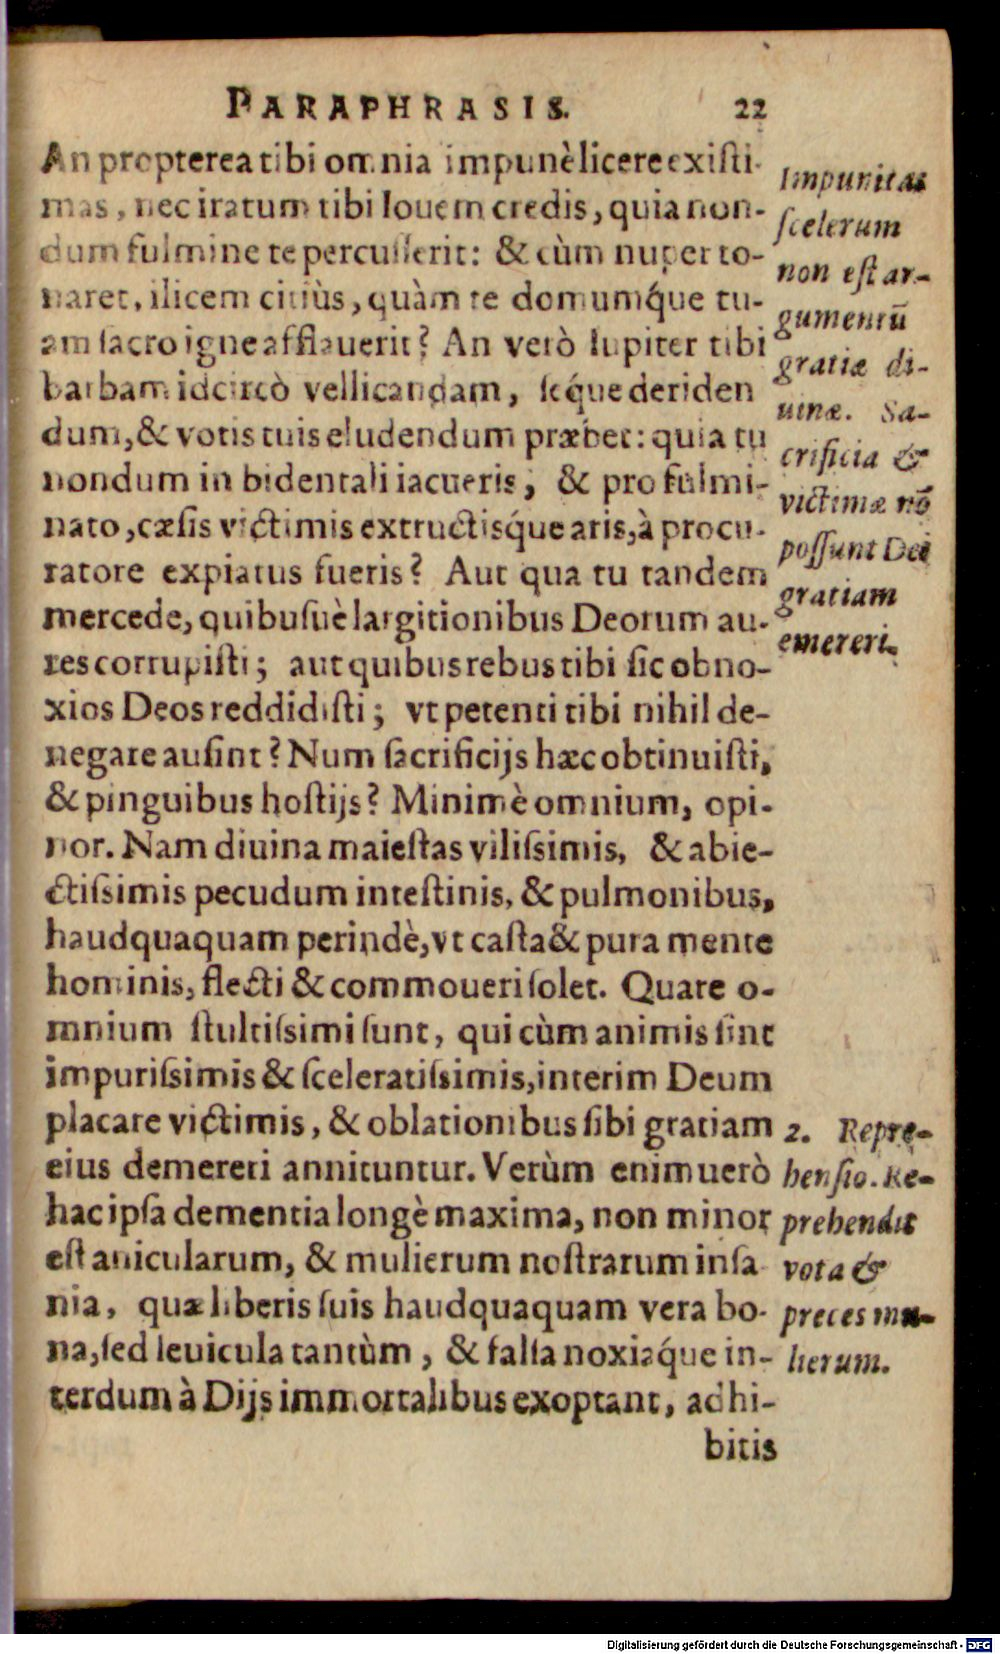 PARAPHRASIS. 22
An propterea tibi omnia impunè licere existi-
mas, nec iratum tibi Iouem credis, quia non-
dum fulmine te percusserit: & cùm nuper to-
naret, ilicem citiùs, quàm te domumq́ue tu-
am sacro igne afflauerit? An verò Iupiter tibi
barbam idcircò vellicandam, seq́ue deriden
dum, & votis tuis eludendum præbet: quia tu
nondum in bidentali iacueris, & pro fulmi-
nato, cæsis victimis extructisq́ue aris, à procu-
ratore expiatus fueris? Aut qua tu tandem
mercede, quibusuè largitionibus Deorum au-
res corrupisti; aut quibus rebus tibi sic obno-
xios Deos reddidisti; vt petenti tibi nihil de-
negare ausint? Num sacrificijs hæc obtinuisti,
& pinguibus hostijs? Minimè omnium, opi-
nor. Nam diuina maiestas vilissimis, & abie-
ctissimis pecudum intestinis, & pulmonibus,
haudquaquam perindè, vt casta & pura mente
hominis, flecti & commoueri solet. Quare o-
mnium stultissimi sunt, qui cùm animis sint
impurissimis & sceleratissimis, interim Deum
placare victimis, & oblationibus sibi gratiam
eius demereri annituntur. Verùm enimuerò
hac ipsa dementia longè maxima, non minor
est anicularum, & mulierum nostrarum insa
nia, quæ liberis suis haudquaquam vera bo-
na, sed leuicula tantùm, & falsa noxiaq́ue in-
terdum à Dijs immortalibus exoptant, adhi-
bitis
Impunitas
scelerum
non est ar-
gumentū
gratiæ di-
uinæ. Sa-
crificia &
victimæ nō
possunt Dei
gratiam
emereri.
2. Repre-
hensio. Re-
prehendit
vota &
preces mu-
lierum.
Digitalisierung gefördert durch die Deutsche Forschungsgemeinschaft - DFG